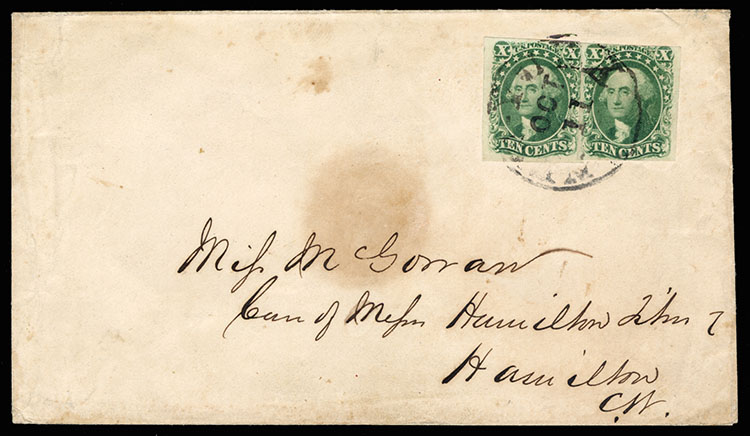 X U.S. POSTAGE X X U.S. POSTAGE X
TEN CENTS TEN CENTS
OCT
11
Miss M Gorran
Care of Messrs Hamilton
Hamilton
C.W.